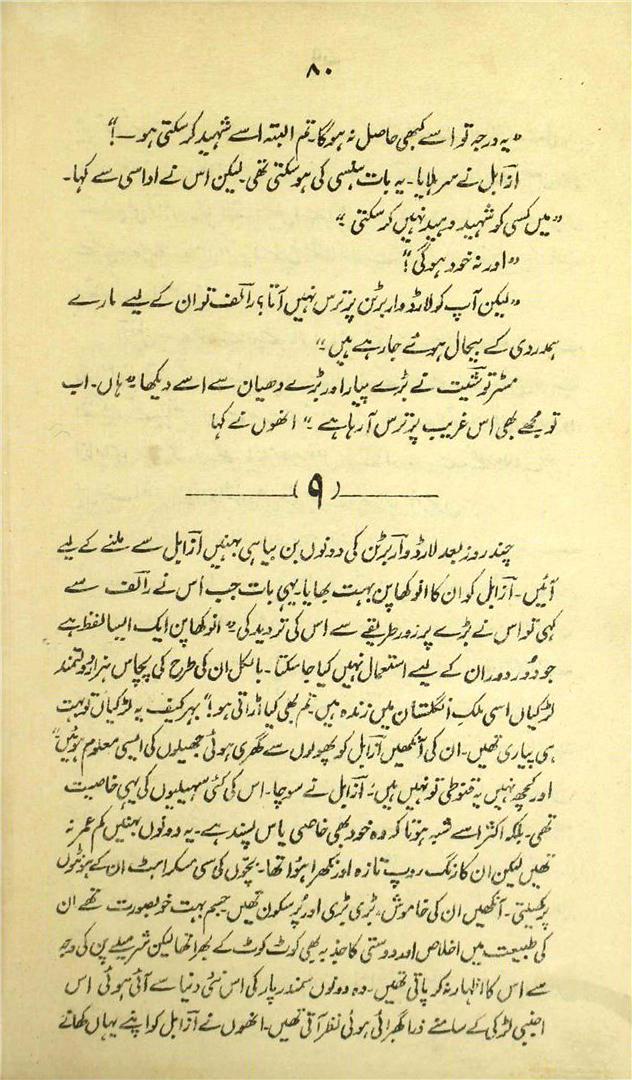 ۸۰
"یہ درجہ تو اسے کبھی حاصل نہ ہوگا۔ تم البتہ اسے شہید کر سکتی ہو ــ!"
ازآبل نے سر ہلایا۔ یہ بات ہنسی کی ہو سکتی تھی۔ لیکن اس نے اداسی سے کہا۔
"میں کسی کو شہید وہید نہیں کر سکتی۔"
"اور نہ خود ہوگی؟"
"لیکن آپ کو لارڈ وار برٹن پر ترس نہیں آتا؟ رالف تو ان کے لیے مارے
ہمدردی کے بیحال ہوئے جا رہے ہیں۔"
مسٹر توشیت نے بڑے پیار اور بڑے دھیان سے اسے دیکھا۔ "ہاں۔ اب
تو مجھے بھی اس غریب پر ترس آ رہا ہے۔" انھوں نے کہا
(۹)
چند روز بعد لارڈ وآربرٹن کی دونوں بن بیاہی بہنیں ازآبل سے ملنے کے لیے
آئیں۔ ازآبل کو ان کا انوکھا پن بہت بھایا۔ یہی بات جب اس نے رالف سے
کہی تو اس نے بڑے پر زور طریقے سے اس کی تردید کی۔ "انوکھا پن ایک ایسا لفظ ہے
جو دُور دُور ان کے لیے استعمال نہیں کیا جا سکتا۔ بالکل ان کی طرح کی پچاس ہزار
لڑکیاں اسی ملک انگلستان میں زندہ ہیں۔ تم بھی کیا اڑاتی ہو!" بہر کیف یہ لڑکیاں تو بہت
ہی پیاری تھیں۔ ان کی آنکھیں ازآبل کو پھولوں سے گھری ہوئی جھیلوں کی ایسی معلوم ہوئیں
اور کچھ نہیں یہ قنوطی تو نہیں ہیں۔ ازآبل نے سوچا۔ اس کی کئی سہیلیوں کی یہی خاصیت
تھی۔ بلکہ اکثر اسے شبہ ہوتا کہ وہ خود بھی خاصی یاس پسند ہے۔ یہ دونوں بہنیں کم عمر نہ
تھیں لیکن ان کا رنگ روپ تازہ اور نکھرا ہوا تھا۔ بچّوں کی سی مسکراہٹ ان کے ہونٹوں
پر کھیلتی۔ آنکھیں ان کی خاموش، بڑی بڑی اور پُر سکون تھیں جسم بہت خوبصورت تھے ان
کی طبیعت میں اخلاص اور دوستی کا جذبہ بھی کوٹ کوٹ کے بھرا تھا لیکن شرمیلے پن کی وجہ
سے اس کا اظہار نہ کر پاتی تھیں۔ وہ دونوں سمندر پار کی اس نئی دنیا سے آئی ہوئی اس
اجنبی لڑکی کے سامنے ذرا گھبرائی ہوئی نظر آتی تھیں۔ انھوں نے ازآبل کو اپنے یہاں کھانے